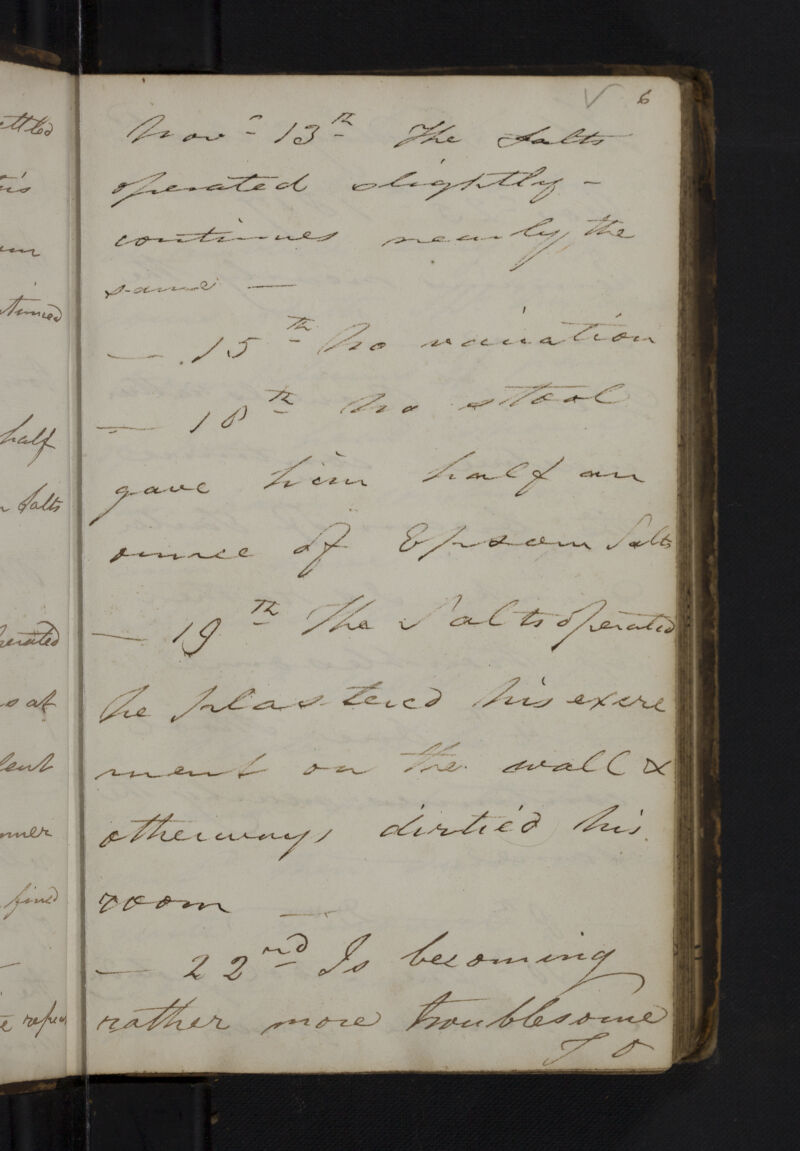 6
Novr 13th The Salts
operated slightly -
continues nearly the
same —
— 15th No variation
— 18th No stool
gave him half an
ounce of Epsom Salts
— 19th The Salts operated
he plastered his excre
ment on the wall &
otherways dirtied his
room —
— 22nd Is becoming
rather more troublesome
T O
ettled
his
half
Salts
perated
s at
lent
nner
fined